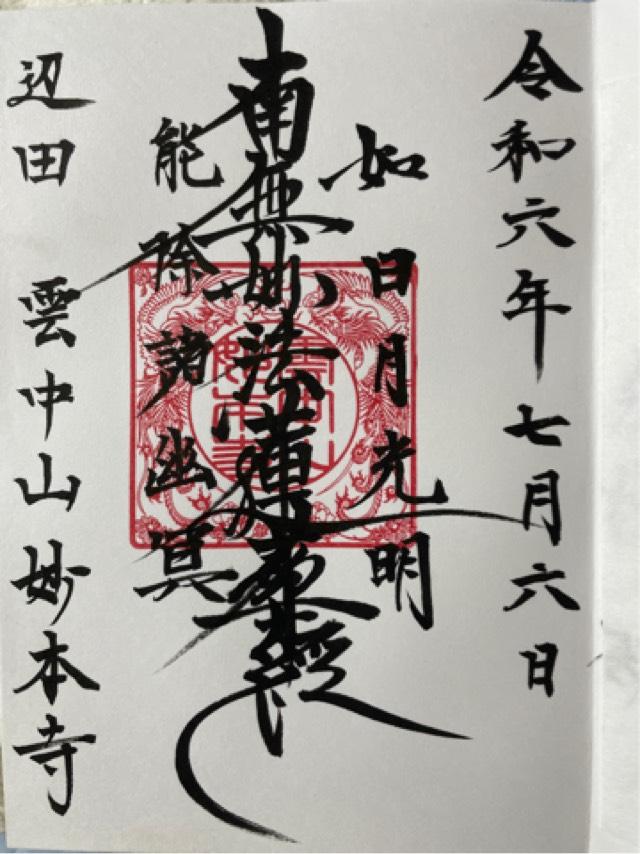 令和六年七月六日
如日月光明
南無妙法蓮華経
能除諸幽冥
辺田 雲中山妙本寺